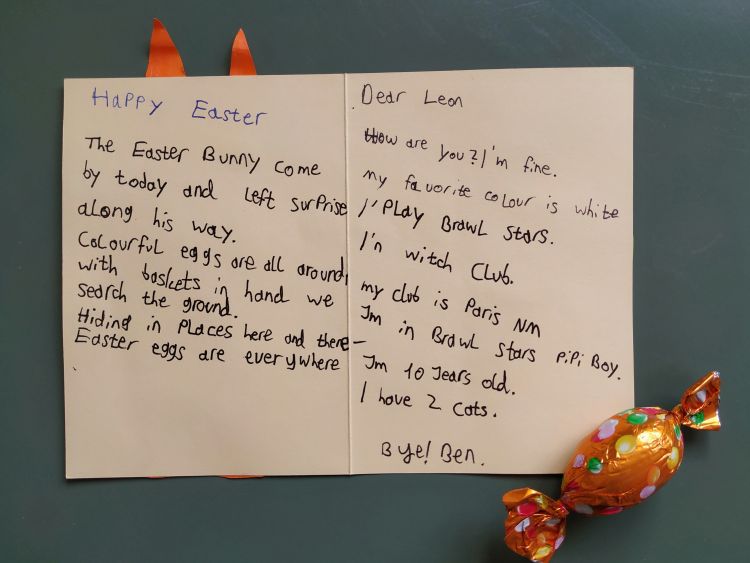 Happy Easter
The Easter Bunny come
by today and left surprise
along his way.
Colourful eggs are all around,
with baskets in hand we
search the ground.
Hiding in places here and there –
Easter eggs are everywhere
Dear Leon
How are you? I'm fine.
my favorite colour is white
I'Play Brawl Stars.
I'n witch Club.
my club is Paris NM
Im in Brawl Stars PiPi Boy.
Im 10 Jears old.
I have 2 cats.
Bye! Ben.